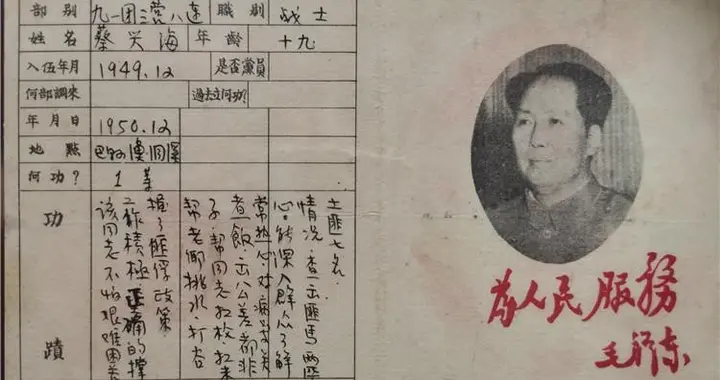 部别 九一团三营八连 职别 战士
姓名 蔡兴海 年龄 十九
入伍年月 1949.12 是否黨員
何部調來 过去立何功?
年月日 1950.12
地點 巴县
何功? 1等
功蹟
该同志不怕艰难困关
工作積極 正確的掌
握了匪俘政策
帮老鄉挑水·打谷
子·帮同志扛枚扛米
煮飯·出公差都非
常热心对病号关
心·能深入群众了解
情况·查出匪馬两匹
土匪七名·
为人民服務
毛泽东